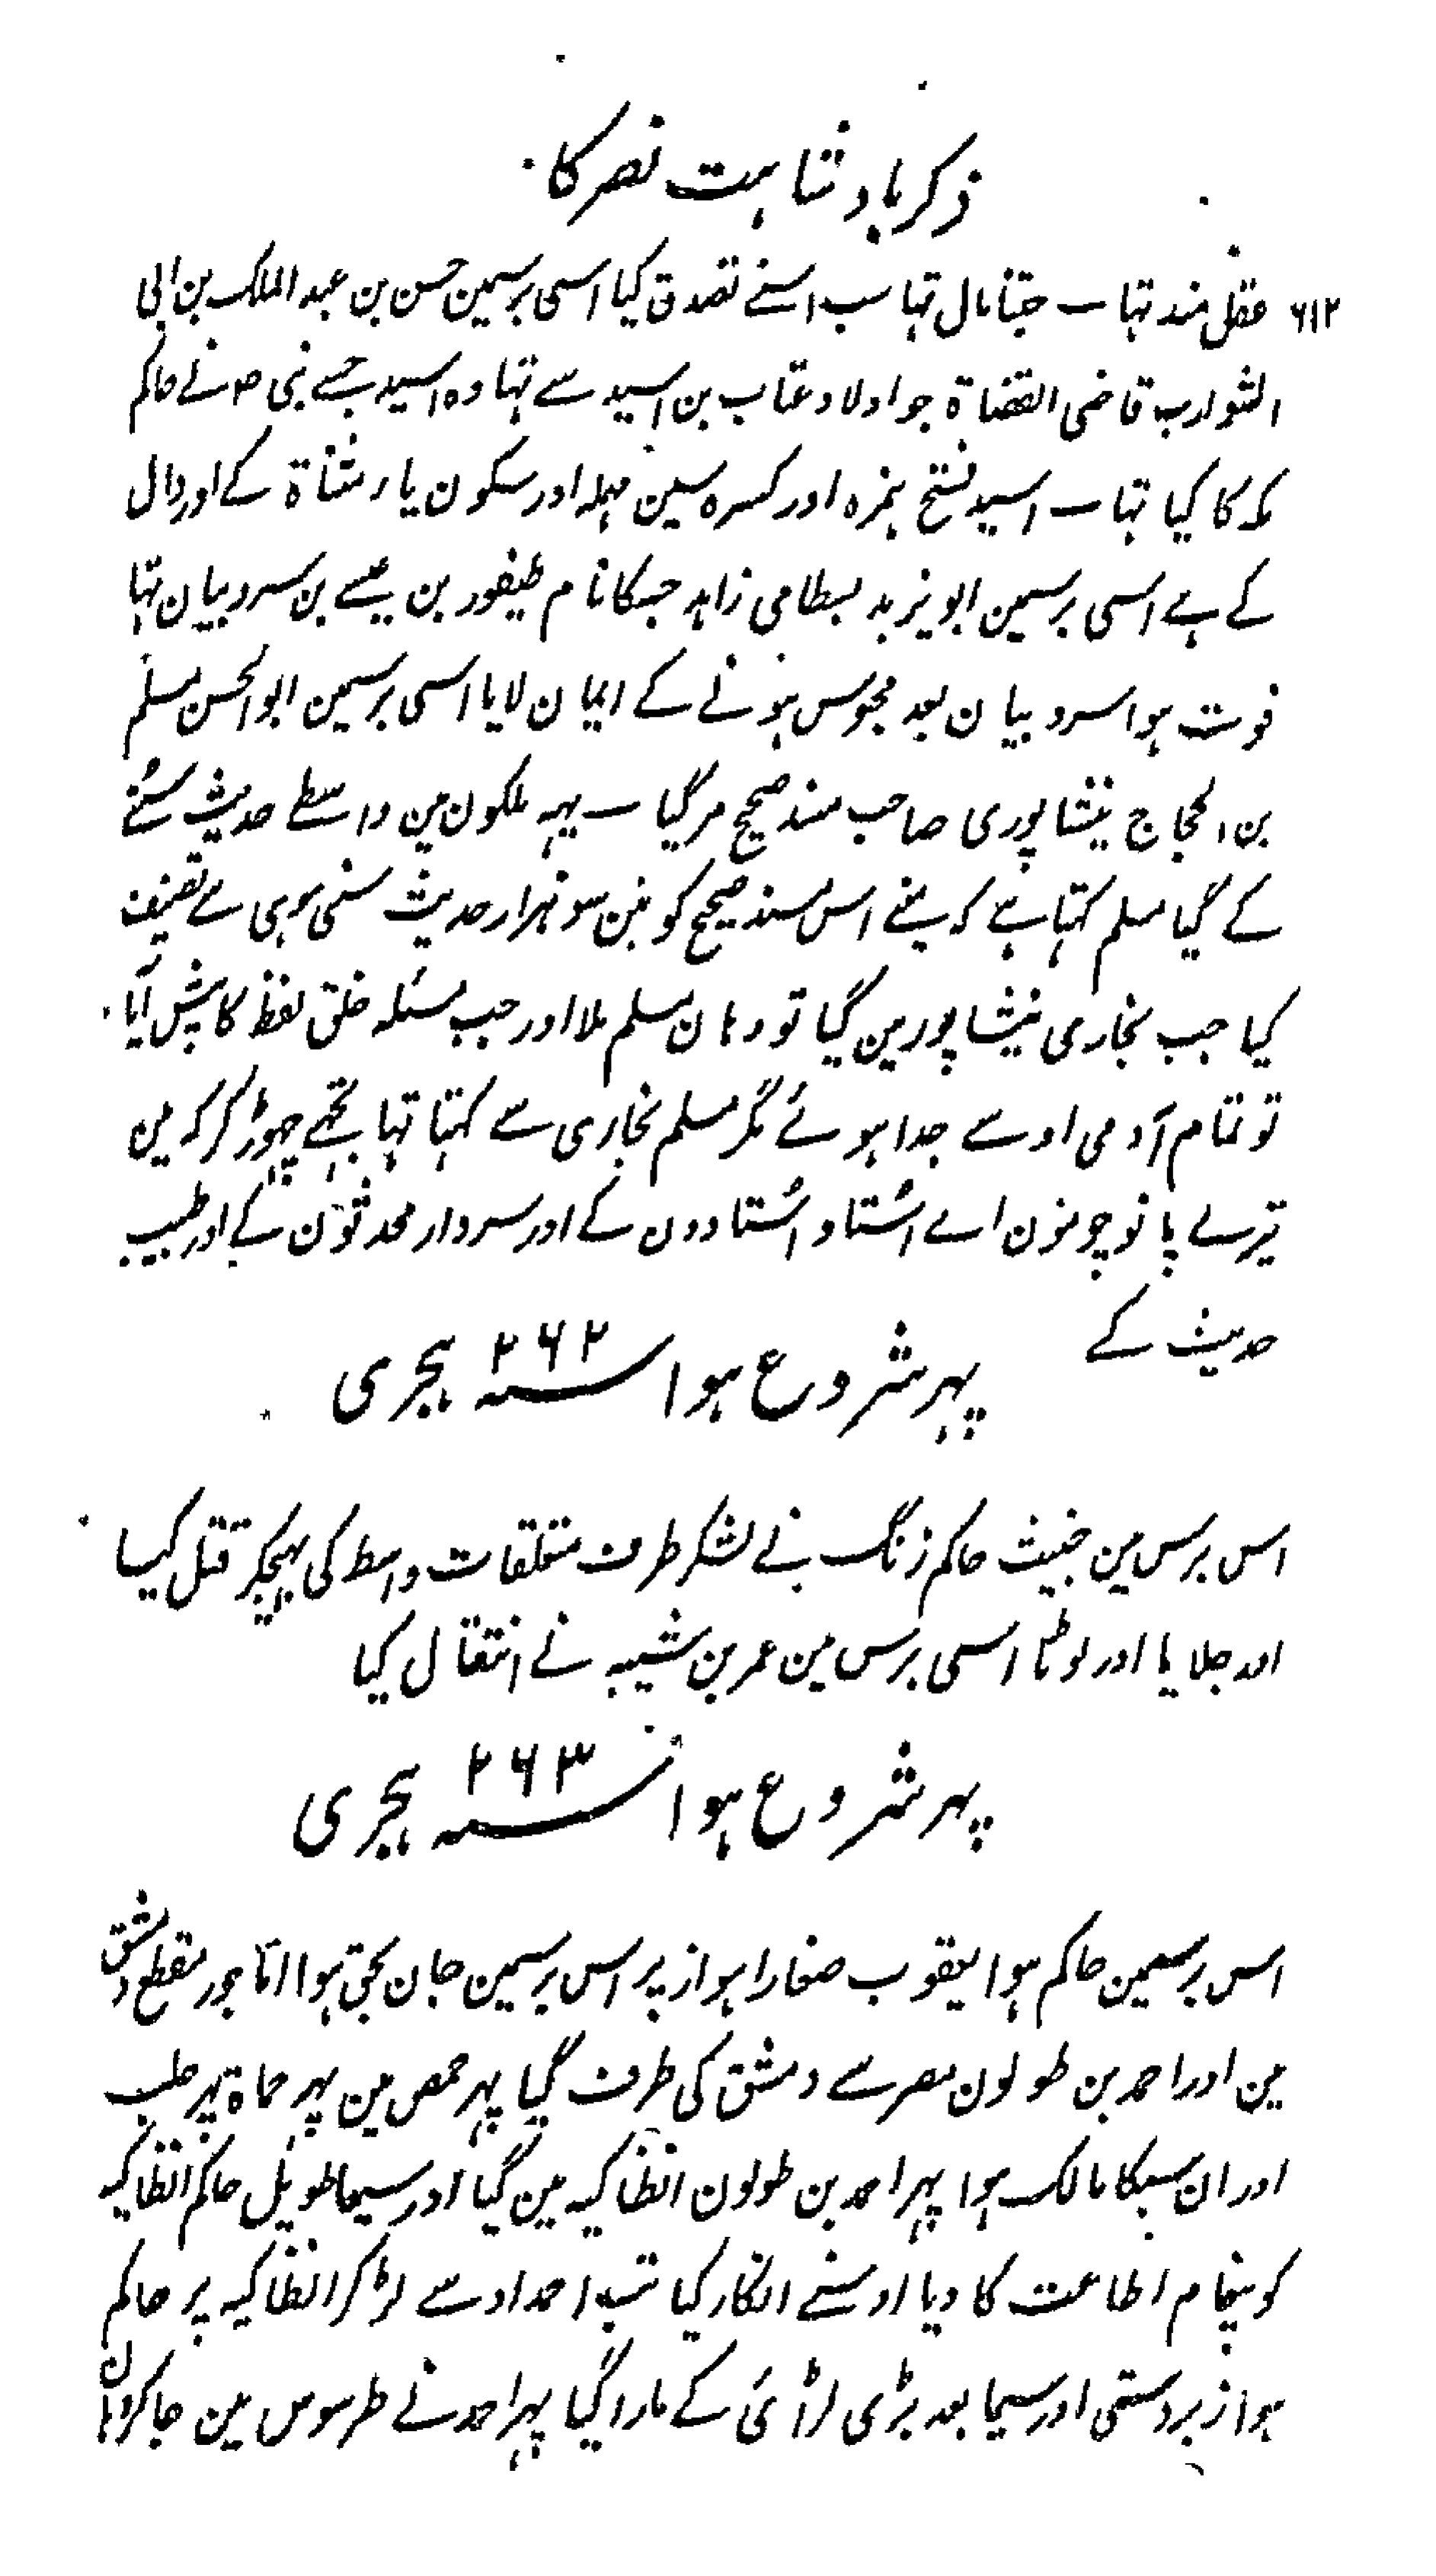 ذکر بادشاہت نصر کا
۶۱۲ عقلمند تہا۔ جتنا مال تہا سب اسنے تصدق کیا اسی برسمین حسن بن عبد الملک بن ابی
الشوارب قاضی القضاۃ جو اولاد عتاب بن اسید سے تہا وہ اسید جسے نبی ص نے حاکم
مکہ کا کیا تہا۔ اسید بفتح ہمزہ اور کسرہ سین مہملہ اور سکون یا رمثناۃ کے اور دال
کے ہے اسی برسمین ابو یزید بسطامی زاہد جسکا نام طیفور بن عیسے بن سروبیان تہا
فوت ہوا سروبیان بعد مجوس ہونے کے ایمان لایا اسی برسمین ابو الحسن مسلم
بن الحجاج نیشاپوری صاحب مسند صحیح مرگیا۔ یہہ ملکون مین واسطے حدیث سننے
کے گیا مسلم کہتا ہے کہ مینے اس مسند صحیح کو تین سو ہزار حدیث سنی ہوی سے تصنیف
کیا جب بخاری نیشاپور مین گیا تو وہان مسلم ملا اور جب مسئلہ خلق لفظ کا پیش آیا
تو تمام آدمی اوسے جدا ہوئے مگر مسلم بخاری سے کہتا تہا مجھے چہوڑ کر کہ مین
تیرے پانو چومون اے استاد استادون کے اور سردار محدثون کے اور طبیب
حدیث کے
پہر شروع ہوا سنہ ۲۶۲ ہجری
اس برس مین خبیث حاکم زنگ نے لشکر طرف متعلقات واسط کی بہیجکر قتل کیا
اور جلایا اور لوٹا اسی برس مین عمر بن شیبہ نے انتقال کیا
پہر شروع ہوا سنہ ۲۶۳ ہجری
اس برسمین حاکم ہوا یعقوب صفار اہواز پر اس برسمین جان بحق ہوا اناجور مقطع دمشق
مین اور احمد بن طولون مصر سے دمشق کی طرف گیا پہر حمص مین پہر حماۃ پہر حلب
اور ان سبکا مالک ہوا پہر احمد بن طولون انطاکیہ مین گیا اور سیما طویل حاکم انطاکیہ
کو پیغام اطاعت کا دیا اوسنے انکار کیا تب احمد اوسے لڑ کر انطاکیہ پر حاکم
ہوا زبردستی اور سیما بعد بڑی لڑائی کے مارا گیا پہر احمد نے طرسوس مین جاکر وہان